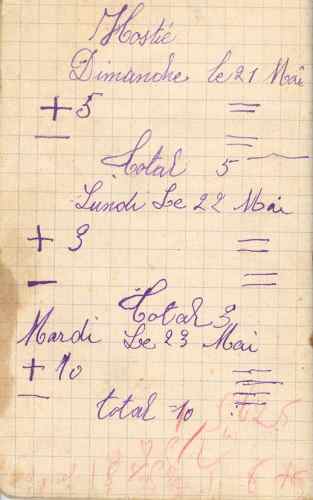 Hostié
Dimanche le 21 Mai
+ 5 =
— =
Total 5
Lundi Le 22 Mai
+ 3 =
— =
Total 3
Mardi Le 23 Mai
+ 10 =
— =
total = 10